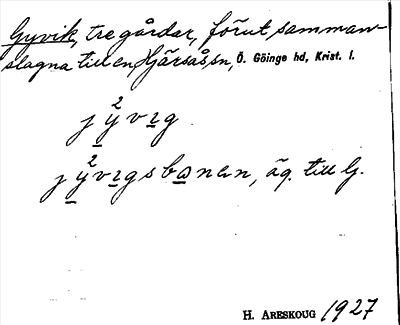 Gyvik, tre gårdar, förut samman-
slagna till en, Hjärsås sn, Ö. Göinge hd, Krist. l.
jy²vıg
jy²vıgsbɷnan, äg. till G.
H. ARESKOUG 1927